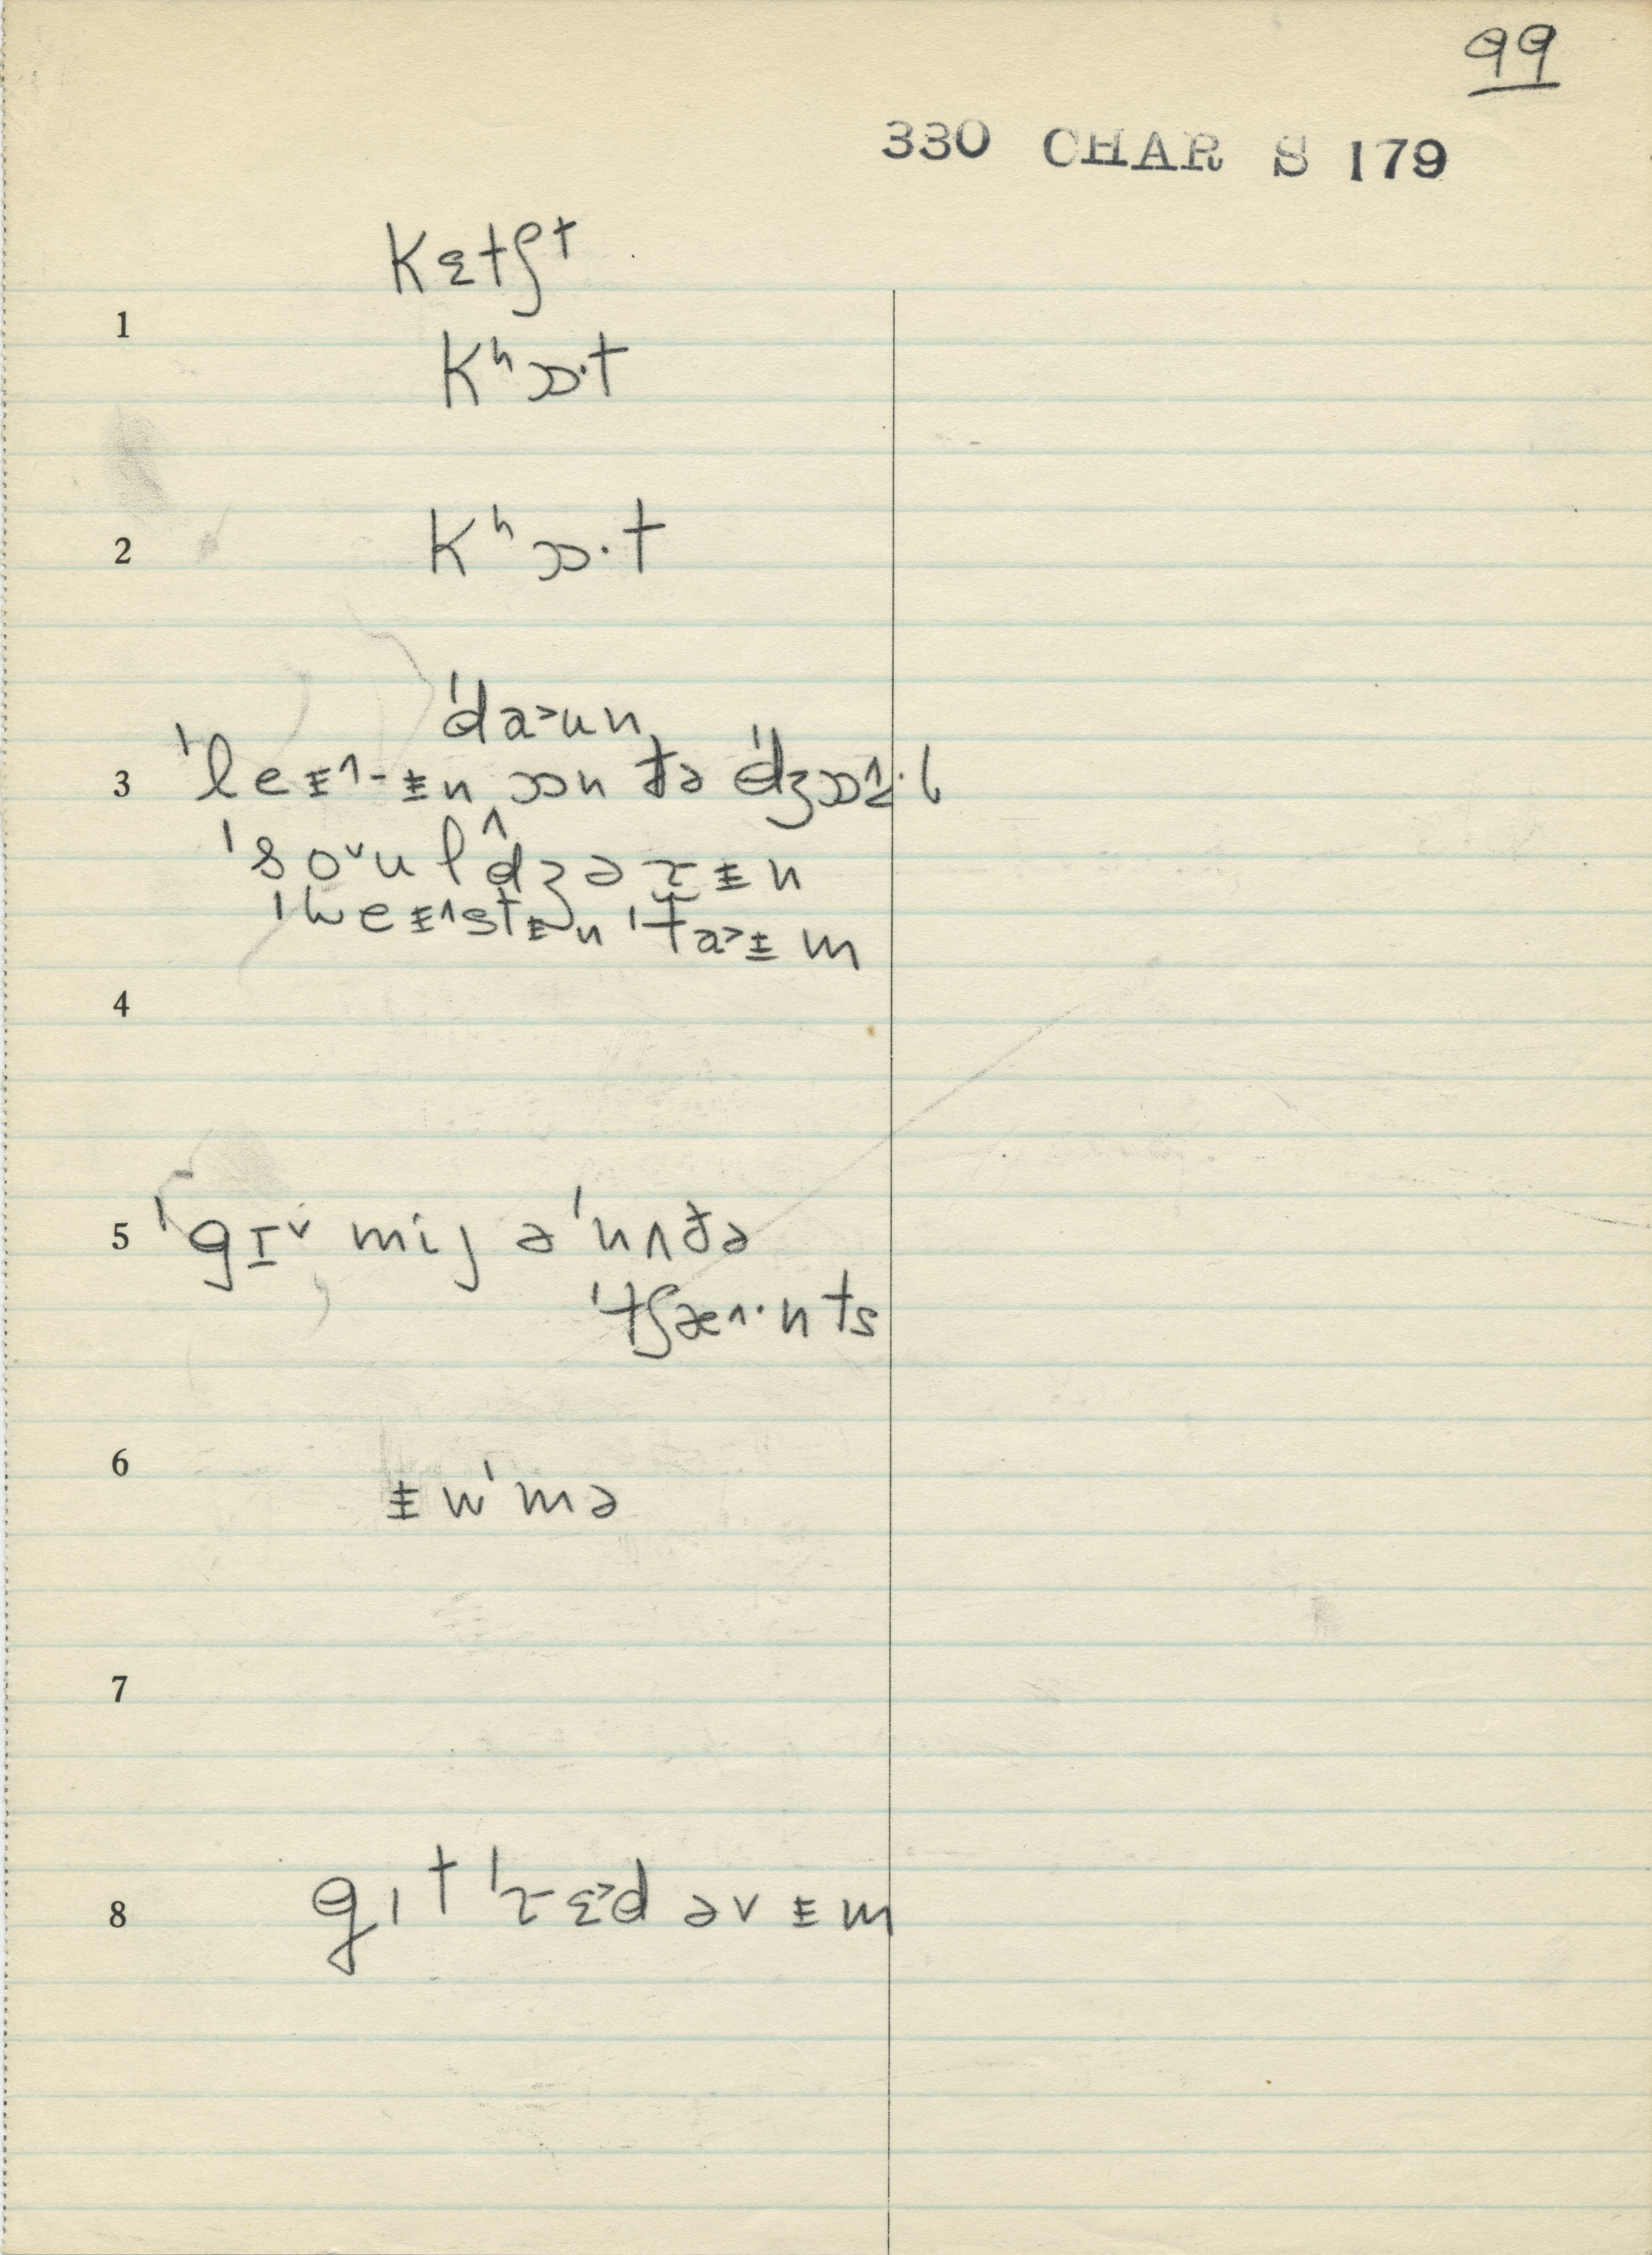 99
330 CHAR S 179
kɛtʃt
1
kʰɒ·t
2 kʰɒ·t
ˈda˃un
3 ˈleɨ˄-ɨn ɒn ðə ˈdʒɒɨ˄·l
ˈso˅ulˆdʒəɾɨn
ˈweɨ˄stɨn ˈta˃ɨm
4
5 ˈgɪ˅ mij əˈnʌðə
ˈtʃæ˄·nts
6
ɨwˈmə
7
8 gɪt ˈɾɛ˃d əvɨm